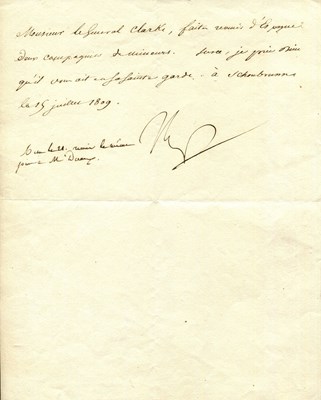 Monsieur le Général Clarke, faites revenir d'Espagne
deux compagnies de mineurs. Sur ce, je prie Dieu
qu'il vous ait en sa sainte garde. à Schonbrunn
le 15 juillet 1809.
Np
pour M.